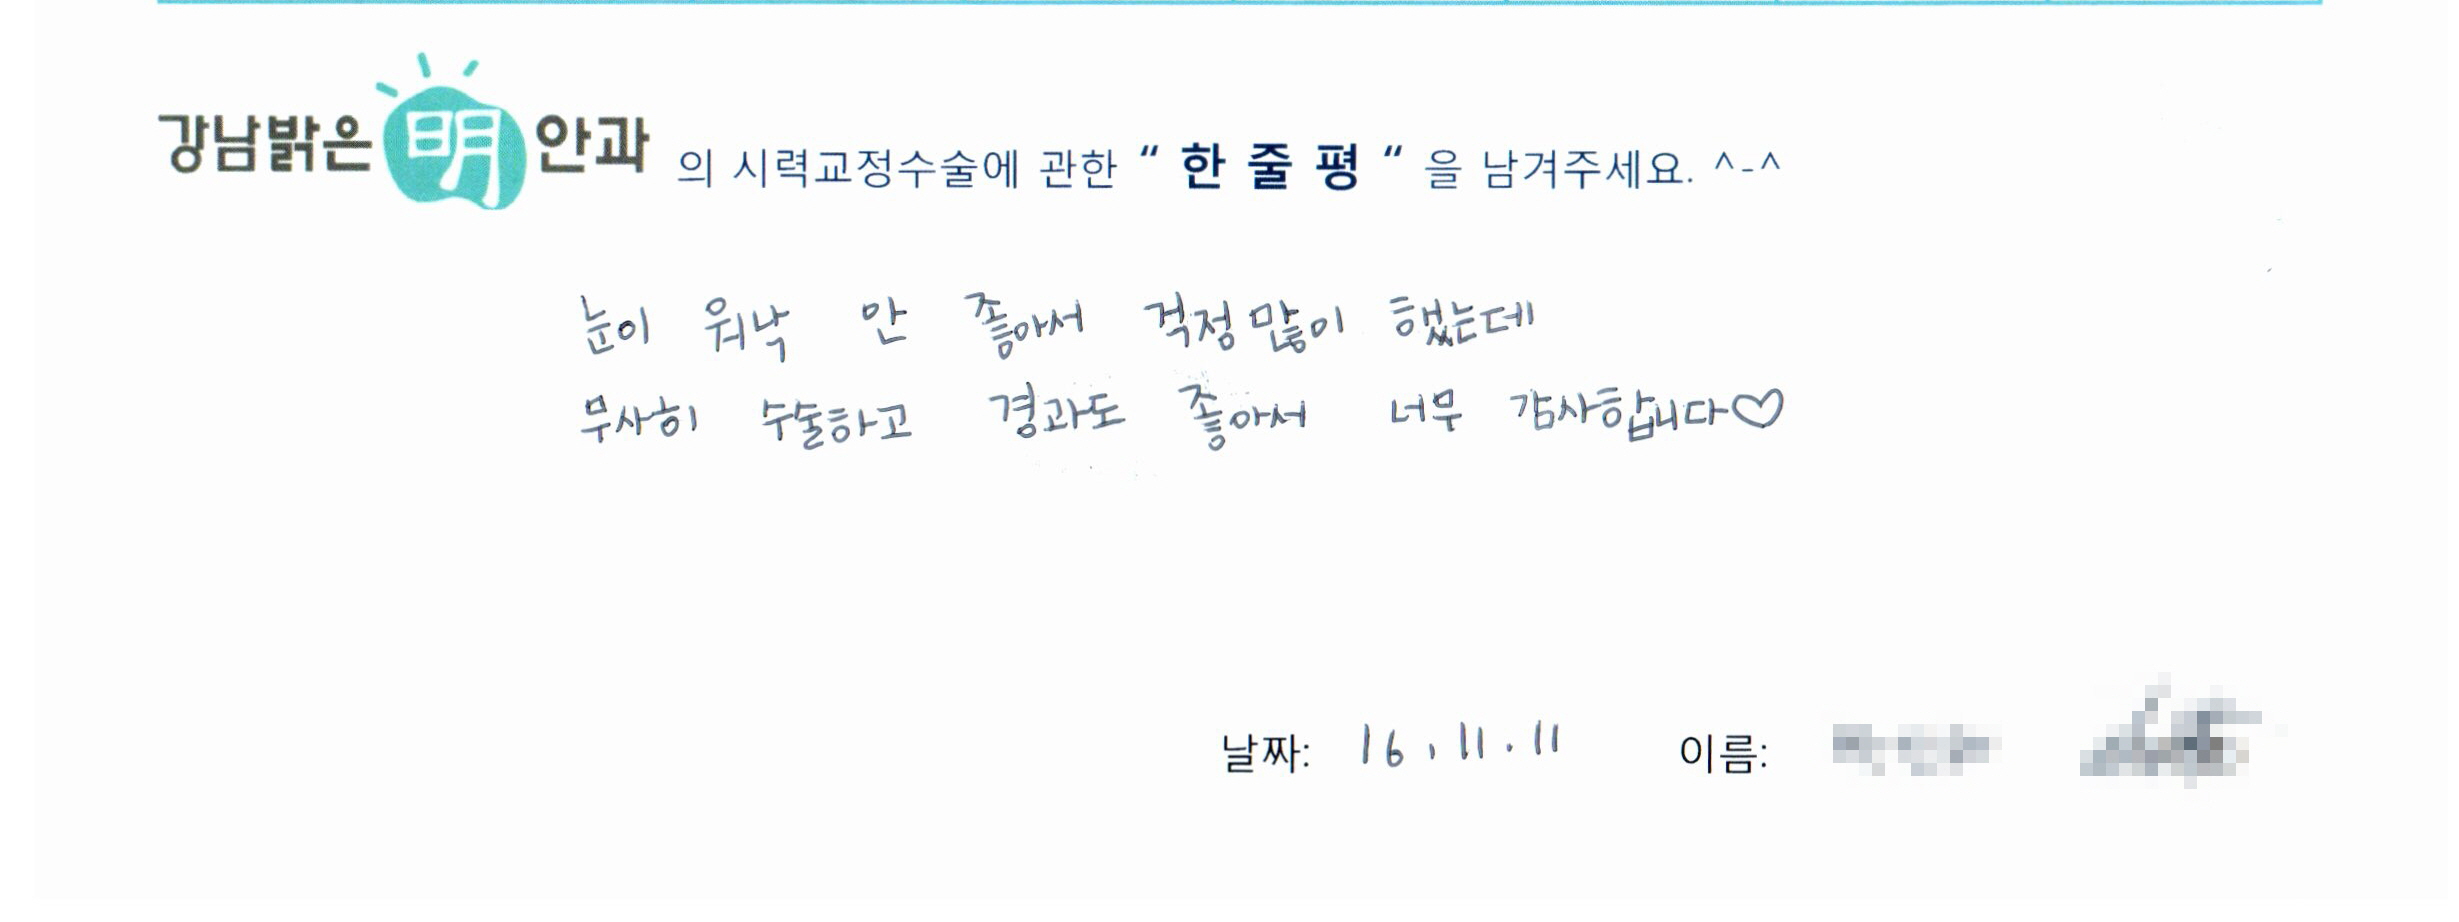 강남밝은 明 안과 의 시력교정수술에 관한 “ 한 줄 평 “ 을 남겨주세요. ^-^
눈이 워낙 안 좋아서 걱정많이 했는데
무사히 수술하고 경과도 좋아서 너무 감사합니다♡
날짜: 16.11.11 이름: